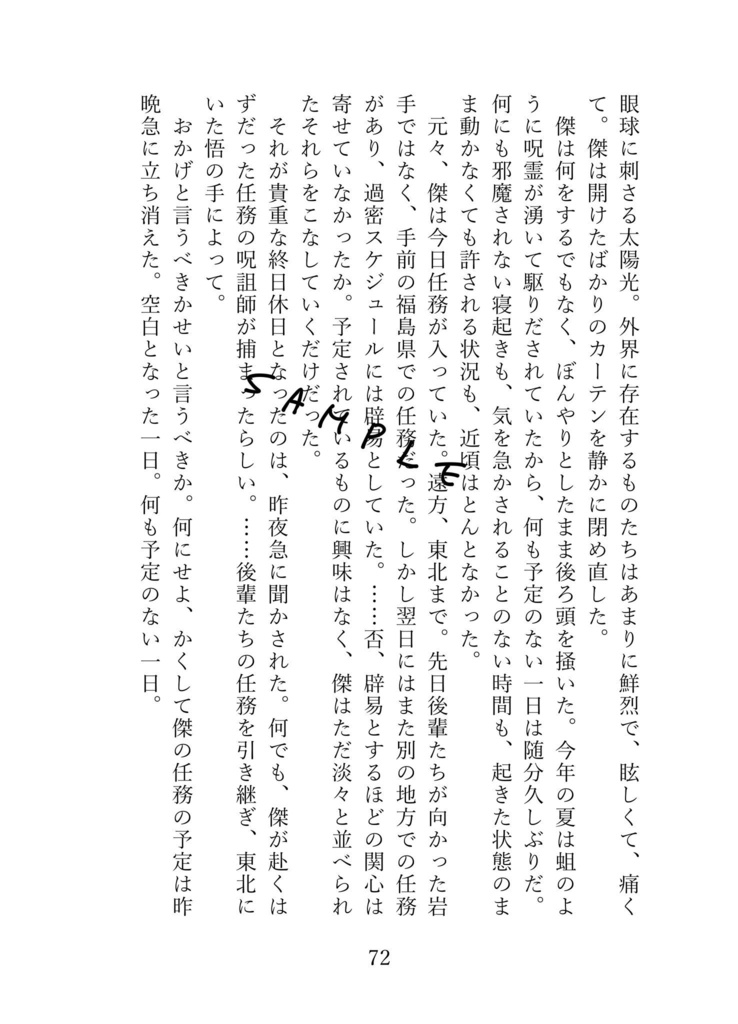 眼球に刺さる太陽光。外界に存在するものたちはあまりに鮮烈で、眩しくて、痛く
て。傑は開けたばかりのカーテンを静かに閉め直した。
傑は何をするでもなく、ぼんやりとしたまま後ろ頭を掻いた。今年の夏は蛆のよ
うに呪霊が湧いて駆りだされていたから、何も予定のない一日は随分久しぶりだ。
何にも邪魔されない寝起きも、気を急かされることのない時間も、起きた状態のま
ま動かなくても許される状況も、近頃はとんとなかった。
元々、傑は今日任務が入っていた。遠方、東北まで。先日後輩たちが向かった岩
手ではなく、手前の福島県での任務だった。しかし翌日にはまた別の地方での任務
があり、過密スケジュールには辟易としていた。……否、辟易とするほどの関心は
寄せていなかったか。予定されているものに興味はなく、傑はただ淡々と並べられ
たそれらをこなしていくだけだった。
それが貴重な終日休日となったのは、昨夜急に聞かされた。何でも、傑が赴くは
ずだった任務の呪詛師が捕まったらしい。……後輩たちの任務を引き継ぎ、東北に
いた悟の手によって。
おかげと言うべきかせいと言うべきか。何にせよ、かくして傑の任務の予定は昨
晩急に立ち消えた。空白となった一日。何も予定のない一日。
SAMPLE
72